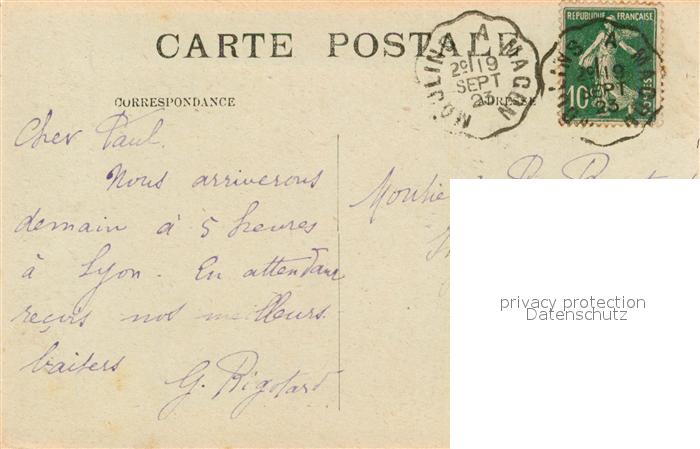 CARTE POSTALE
CORRESPONDANCE
ADRESSE
MOULINS A MACON
2º 19
SEPT
23
REPUBLIQUE FRANÇAISE
10
POSTES
Cher Paul.
Nous arriverons
demain à 5 heures
à Lyon. En attendant
reçois nos meilleurs
baisers
G. Rigotard
privacy protection
Datenschutz